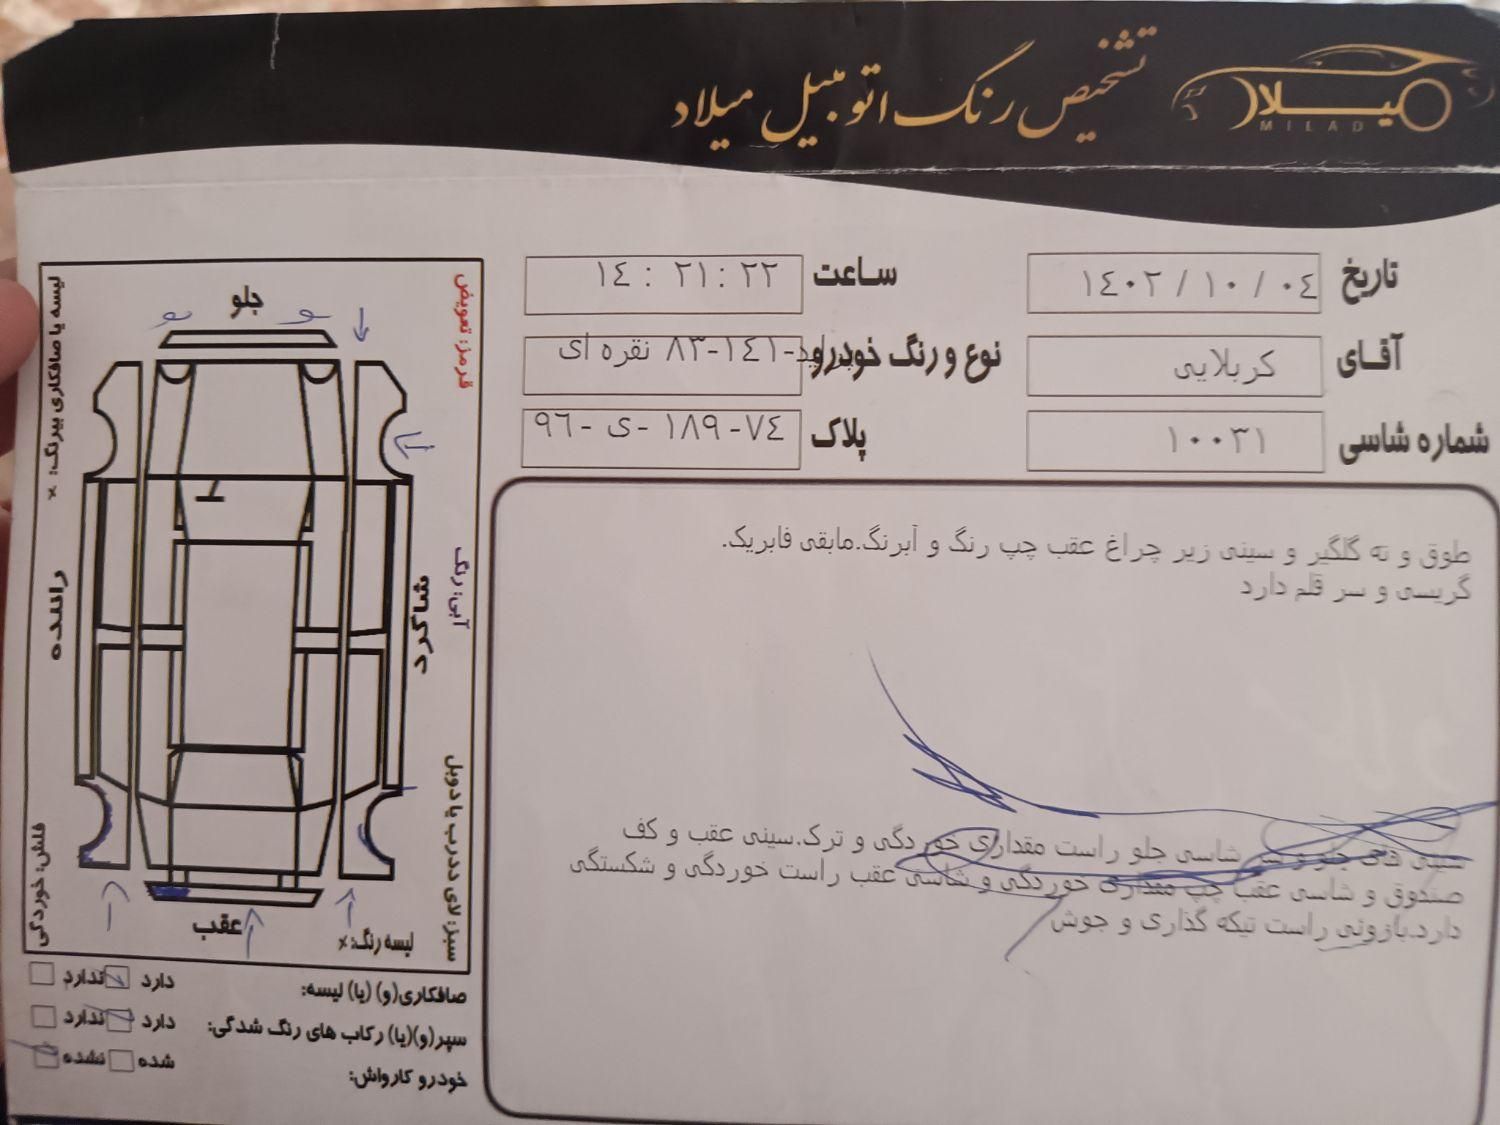 میلاد
MILAD
تشخیص رنگ اتومبیل میلاد
تاریخ ۱۴۰۲ / ۱۰ / ۰۴
ساعت ۱۴ : ۲۱ : ۲۲
آقای کربلایی
نوع و رنگ خودرو ۱۴۱-۸۳ نقره ای
شماره شاسی ۱۰۰۳۱
پلاک ۷۴- ۱۸۹ -ی -۹۶
طوق و ته گلگیر و سینی زیر چراغ عقب چپ رنگ و آبرنگ.مابقی فابریک.
گریسی و سر قلم دارد
سینی های جلو و سر شاسی جلو راست مقداری خوردگی و ترک.سینی عقب و کف
صندوق و شاسی عقب چپ مقداری خوردگی و شاسی عقب راست خوردگی و شکستگی
دارد.بازوئی راست تیکه گذاری و جوش
قرمز: تعویض
آبی: رنگ
سبز: لای ددرب یا دوبل
لیسه یا صافکاری بیرنگ: ×
راننده
فلش: خوردگی
جلو
شاگرد
عقب
لیسه رنگ: ×
صافکاری(و) (یا) لیسه: دارد ندارد
سپر(و)(یا) رکاب های رنگ شدگی: دارد ندارد
خودرو کارواش: شده نشده